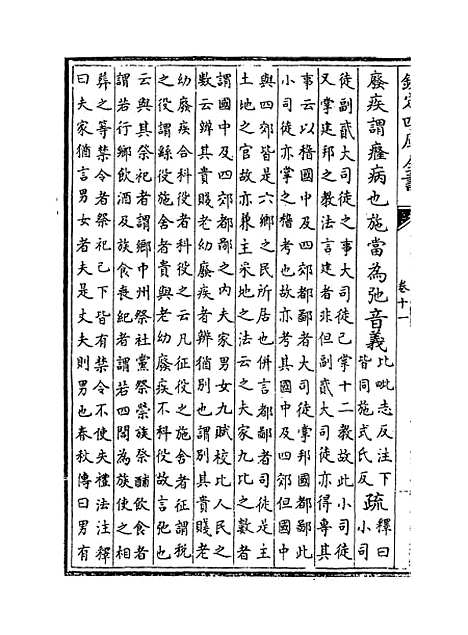 欽定四庫全書 卷十一
廢疾謂癃病也施當為弛音義比毗志反注下皆同施式氏反疏釋曰小司
徒副貳大司徒之事大司徒已掌十二教故此小司徒
又掌建邦之教法言建者非但副貳大司徒亦得專其
事云以稽國中及四郊都鄙者大司徒掌邦國都鄙此
小司徒亦掌之稽考也故亦考其國中及四郊但國中
與四郊皆是六鄉之民所居也併言都鄙者司徒是主
土地之官故亦兼主采地之法云之夫家九比之數者
謂國中及四郊都鄙之内夫家男女九賦校比人民之
數云辨其貴賤老幼廢疾者辨猶别也謂别其貴賤老
幼廢疾合科役者科役之云凡征役之施舍者征謂税
之役謂繇役施舍者貴與老幼廢疾不科役故言弛也
云與其祭祀者謂鄉中州祭社黨祭禜族祭酺飲食者
謂若行鄉飲酒及族食喪紀者謂若四閭為族使之相
葬之等禁令者祭祀已下皆有禁令不使失禮法注釋
曰夫家猶言男女者夫是丈夫則男也春秋傳曰男有